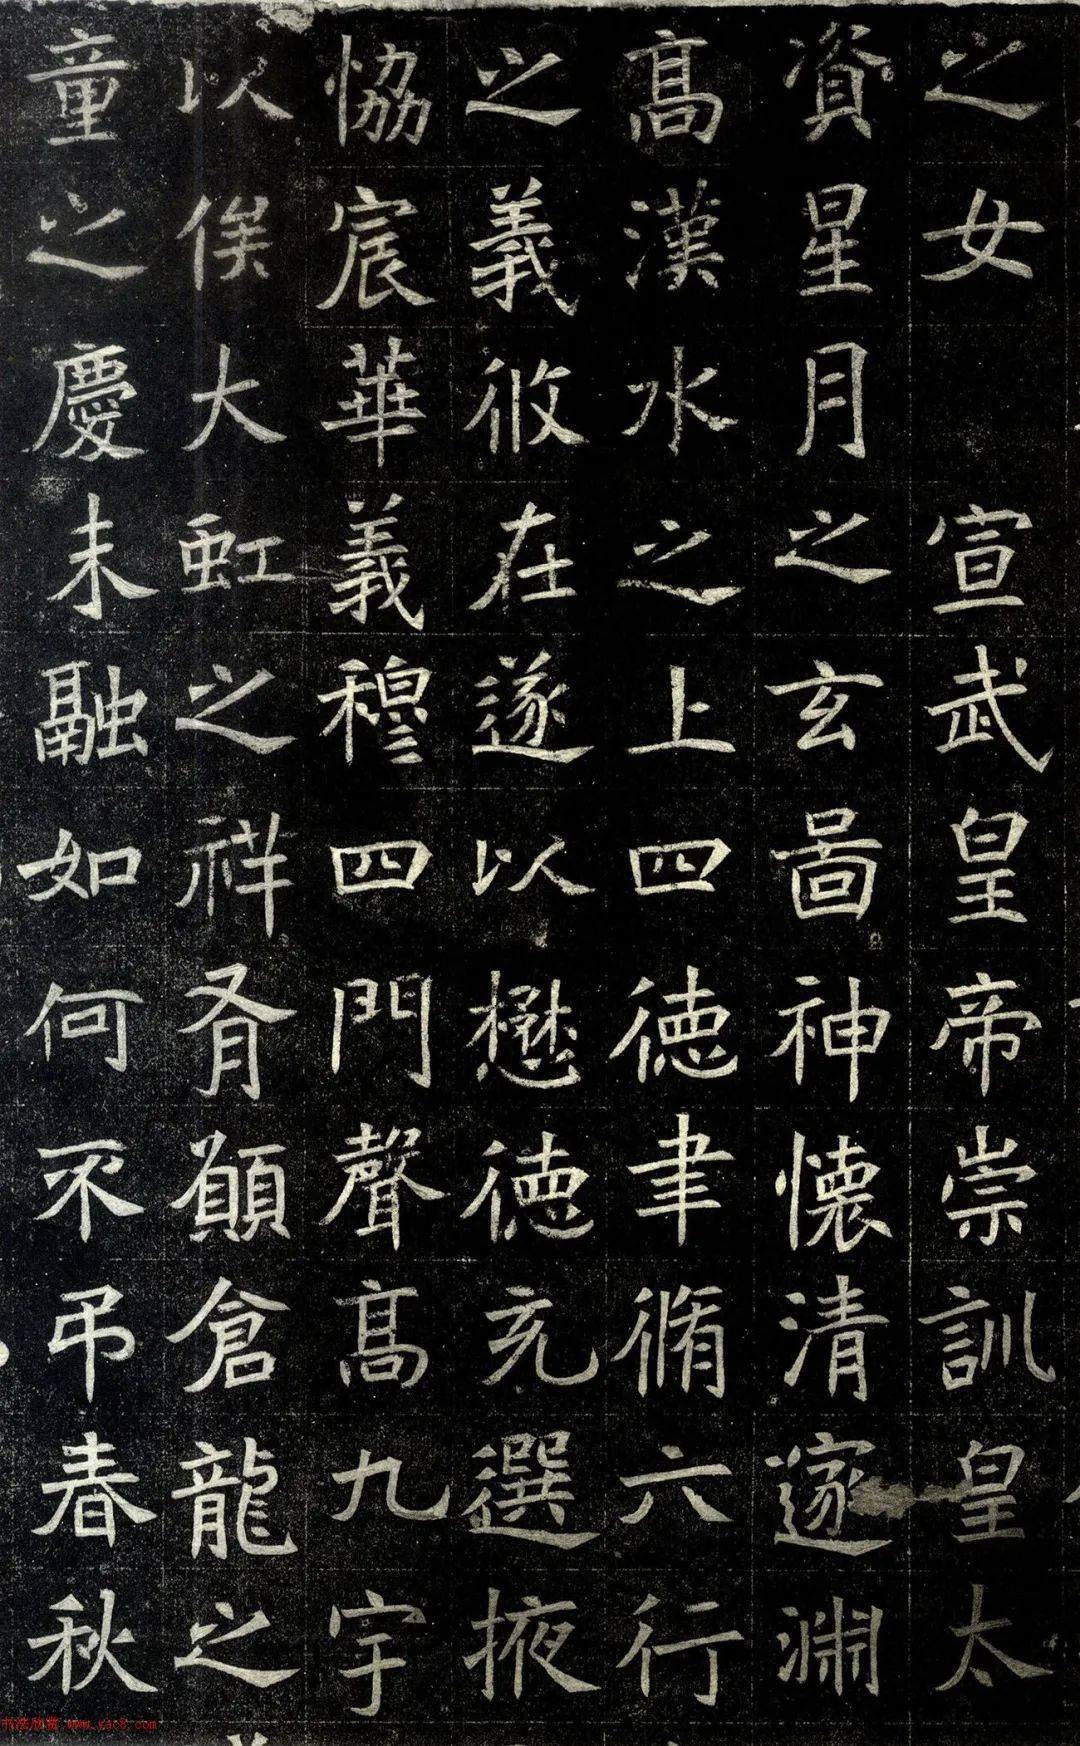 之女　宣武皇帝崇訓皇太
資星月之玄啚神懷清邃淵
髙漢水之上四德聿脩六行
之義攸在遂以懋德充選掖
恊宸華義穆四門聲髙九宇
以俟大虹之祥胥顧倉龍之
童之慶未融如何不弔春秋
书法欣赏 www.yac8.com